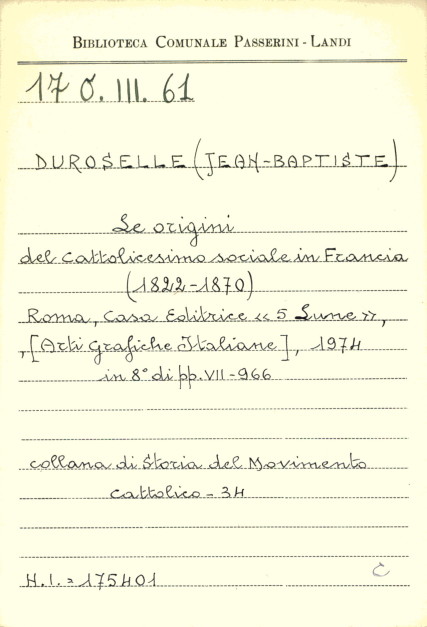 BIBLIOTECA COMUNALE PASSERINI - LANDI
17 O. III. 61
DUROSELLE (JEAN-BAPTISTE)
Le origini
del cattolicesimo sociale in Francia
(1822-1870)
Roma, Casa Editrice « 5 Lune »,
,[Arti Grafiche Italiane], 1974
in 8° di pp. VII - 966
collana di Storia del Movimento
Cattolico - 34
H.I. = 175401
C